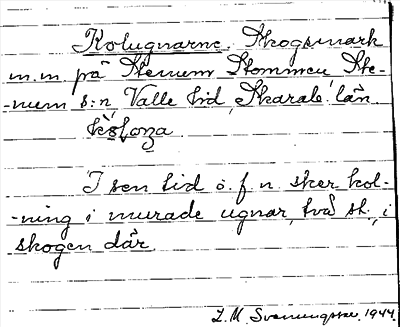 Kolugnarne. Skogsmark
m.m. på Stenum Stommen Ste-
-num s:n, Valle hd, Skarab. län.
I sen tid o. f. n. sker kol-
-ning i murade ugnar, två st., i
skogen där.
L.M. Svanungsson. 1944.